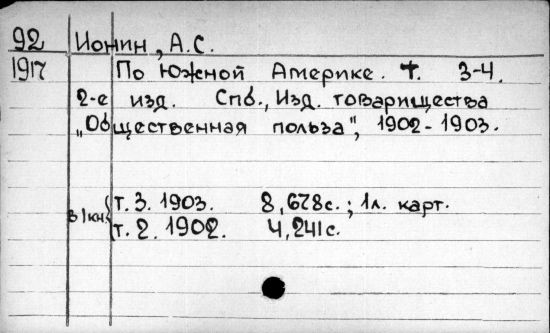 92 Ионин, А.С.
1917 По Южной Америке. т. 3-4.
2-е изд. Спб., Изд. товарищества
"Общественная польза", 1902-1903.
т. 3. 1903. 8,678с.; 1л. карт.
в 1кн.
т. 2. 1902. 4,241с.